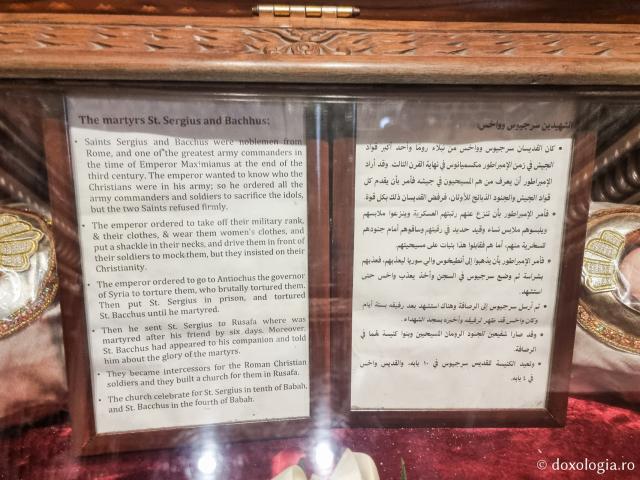 The martyrs St. Sergius and Bachhus:
• Saints Sergius and Bacchus were noblemen from
Rome, and one of the greatest army commanders in
the time of Emperor Maximianus at the end of the
third century. The emperor wanted to know who the
Christians were in his army; so he ordered all the
army commanders and soldiers to sacrifice the idols,
but the two Saints refused firmly.
• The emperor ordered to take off their military rank,
& their clothes, & wear them women's clothes, and
put a shackle in their necks, and drive them in front of
their soldiers to mock them, but they insisted on their
Christianity.
• The emperor ordered to go to Antiochus the governor
of Syria to torture them, who brutally tortured them.
Then put St. Sergius in prison, and tortured
St. Bacchus until he martyred.
• Then he sent St. Sergius to Rusafa where was
martyred after his friend by six days. Moreover,
St. Bacchus had appeared to his companion and told
him about the glory of the martyrs.
• They became intercessors for the Roman Christian
soldiers and they built a church for them in Rusafa.
• The church celebrate for St. Sergius in tenth of Babah,
and St. Bacchus in the fourth of Babah.
الشهيدين سرجيوس وواخس:
• كان القديسان سرجيوس وواخس من نبلاء روما وأحد أكبر قواد
الجيش في زمن الإمبراطور مكسيميانوس في نهاية القرن الثالث. وقد أراد
الإمبراطور أن يعرف من هم المسيحيون في جيشه فأمر بأن يقدم كل
قواد الجيش والجنود الذبائح للأوثان، فرفض القديسان ذلك بكل قوة.
• فأمر الإمبراطور بأن تنزع عنهم رتبتهم العسكرية وينزعوا ملابسهم
ويلبسوهم ملابس نساء وقيد حديد في رقبتهم وساقوهم أمام جنودهم
للسخرية منهم، أما هم فقابلوا هذا بثبات على مسيحيتهم.
• فأمر الإمبراطور بأن يذهبوا إلى أنطيخوس والي سوريا ليعذبهم، فعذبهم
بشراسة ثم وضع سرجيوس في السجن وأخذ يعذب واخس حتى
استشهد.
• ثم أرسل سرجيوس إلى الرصافة وهناك استشهد بعد رفيقه بستة أيام
وكان واخس قد ظهر لرفيقه وأخبره بمجد الشهداء.
• وقد صارا شفيعين للجنود الرومان المسيحيين وبنوا كنيسة لهما في
الرصافة.
• وتعيد الكنيسة للقديس سرجيوس في ١٠ بابه، والقديس واخس
في ٤ بابه.
© doxologia.ro